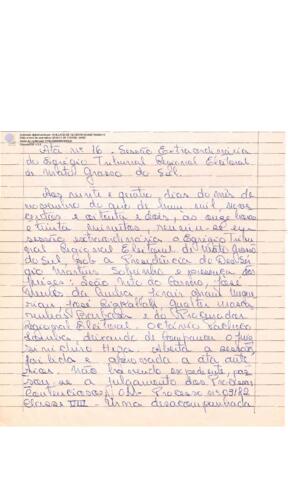 Ata nº 16 - Sessão Extraordinária
do Egrégio Tribunal Regional Eleitoral
de Mato Grosso do Sul.
Aos vinte e quatro dias do mês de
novembro do ano de hum mil nove
centos e oitenta e dois, às onze horas
e trinta minutos, reuniu-se em
sessão extraordinária o Egrégio Tribu
nal Regional Eleitoral de Mato Grosso
do Sul, sob a Presidência do Desº Sér
gio Martins Sobrinho e presença dos
Juízes: João
da Cunha,
Barbosa e do Procurador
Regional Eleitoral
O Juiz
Higa. Aberta a sessão,
foi lida e aprovada a ata ante
rior. Não havendo expediente, pas
sou-se a julgamento dos Processos
Contenciosos: 01- Processo nº 09/82
Classe VIII - Urna desacompanhada